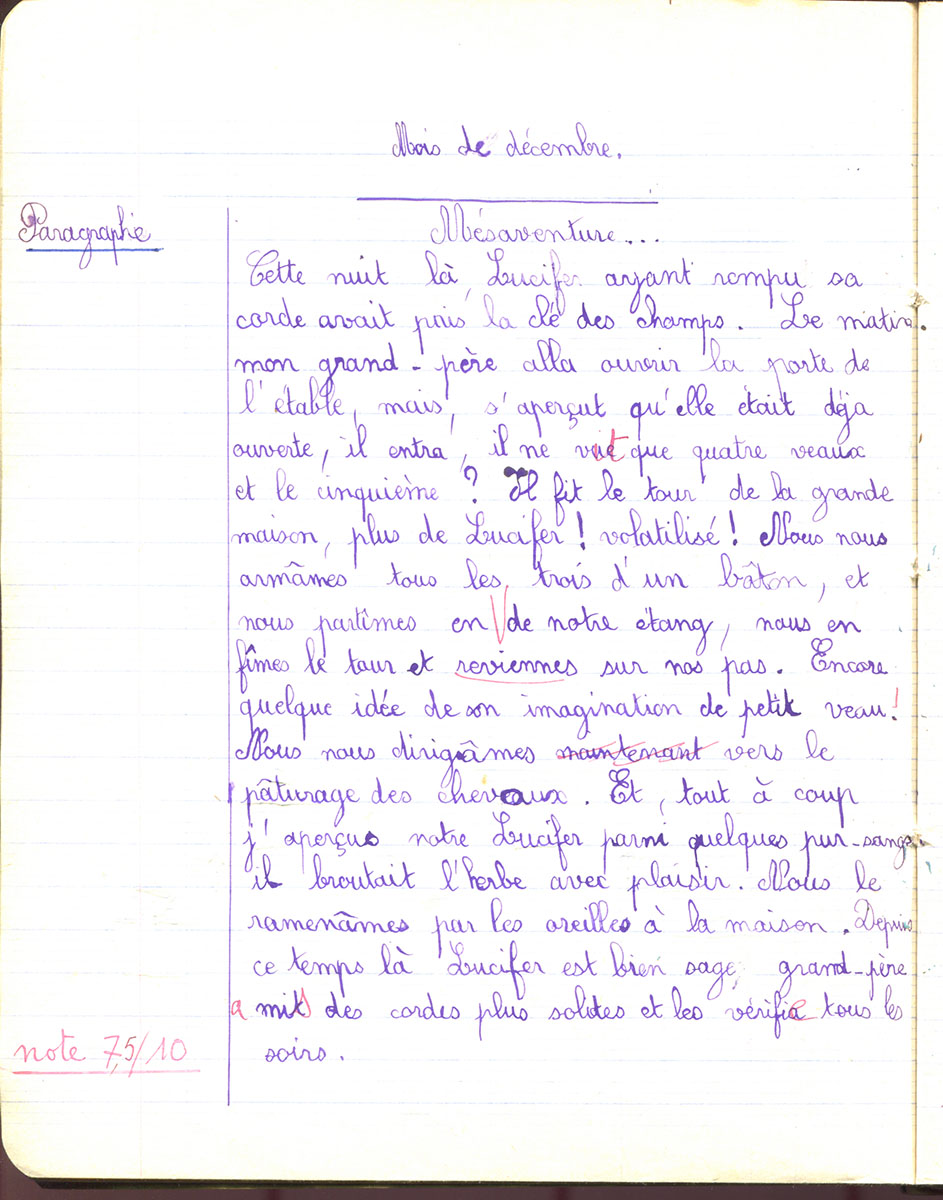 Mois de décembre.
Paragraphe
Mésaventure...
Cette nuit là, Lucifer ayant rompu sa
corde avait pris la clé des champs. Le matin
mon grand-père alla ouvrir la porte de
l'étable, mais, s'aperçut qu'elle était déja
ouverte, il entra, il ne vit que quatre veaux
et le cinquième ? Il fit le tour de la grande
maison, plus de Lucifer ! volatilisé ! Nous nous
armâmes tous les trois d'un bâton, et
nous partîmes en de notre étang, nous en
fîmes le tour et reviennes sur nos pas. Encore
quelque idée de son imagination de petit veau !
Nous nous dirigâmes maintenant vers le
pâturage des chevaux. Et, tout à coup
j'aperçus notre Lucifer parmi quelques pur-sangs
il broutait l'herbe avec plaisir. Nous le
ramenâmes par les oreilles à la maison. Depuis
ce temps là Lucifer est bien sage, grand-père
a mis des cordes plus solides et les vérifie tous les
soirs.
note 7,5/10